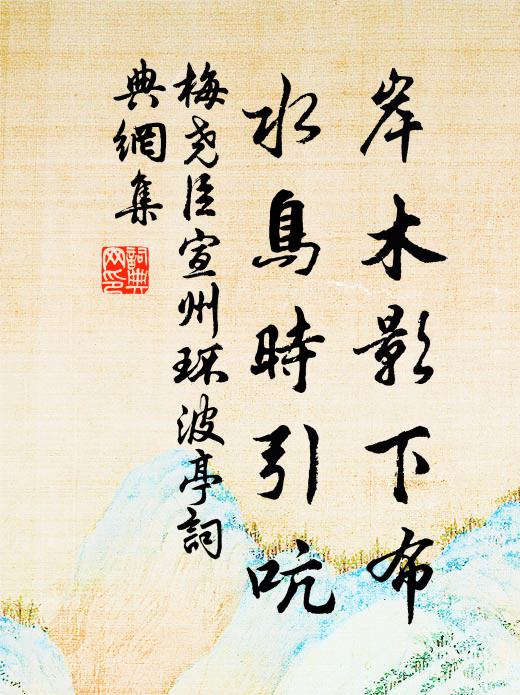 岸木影下布
水鳥時引吭
梅尧臣宣州环波亭詞
典網集
詞典
网印